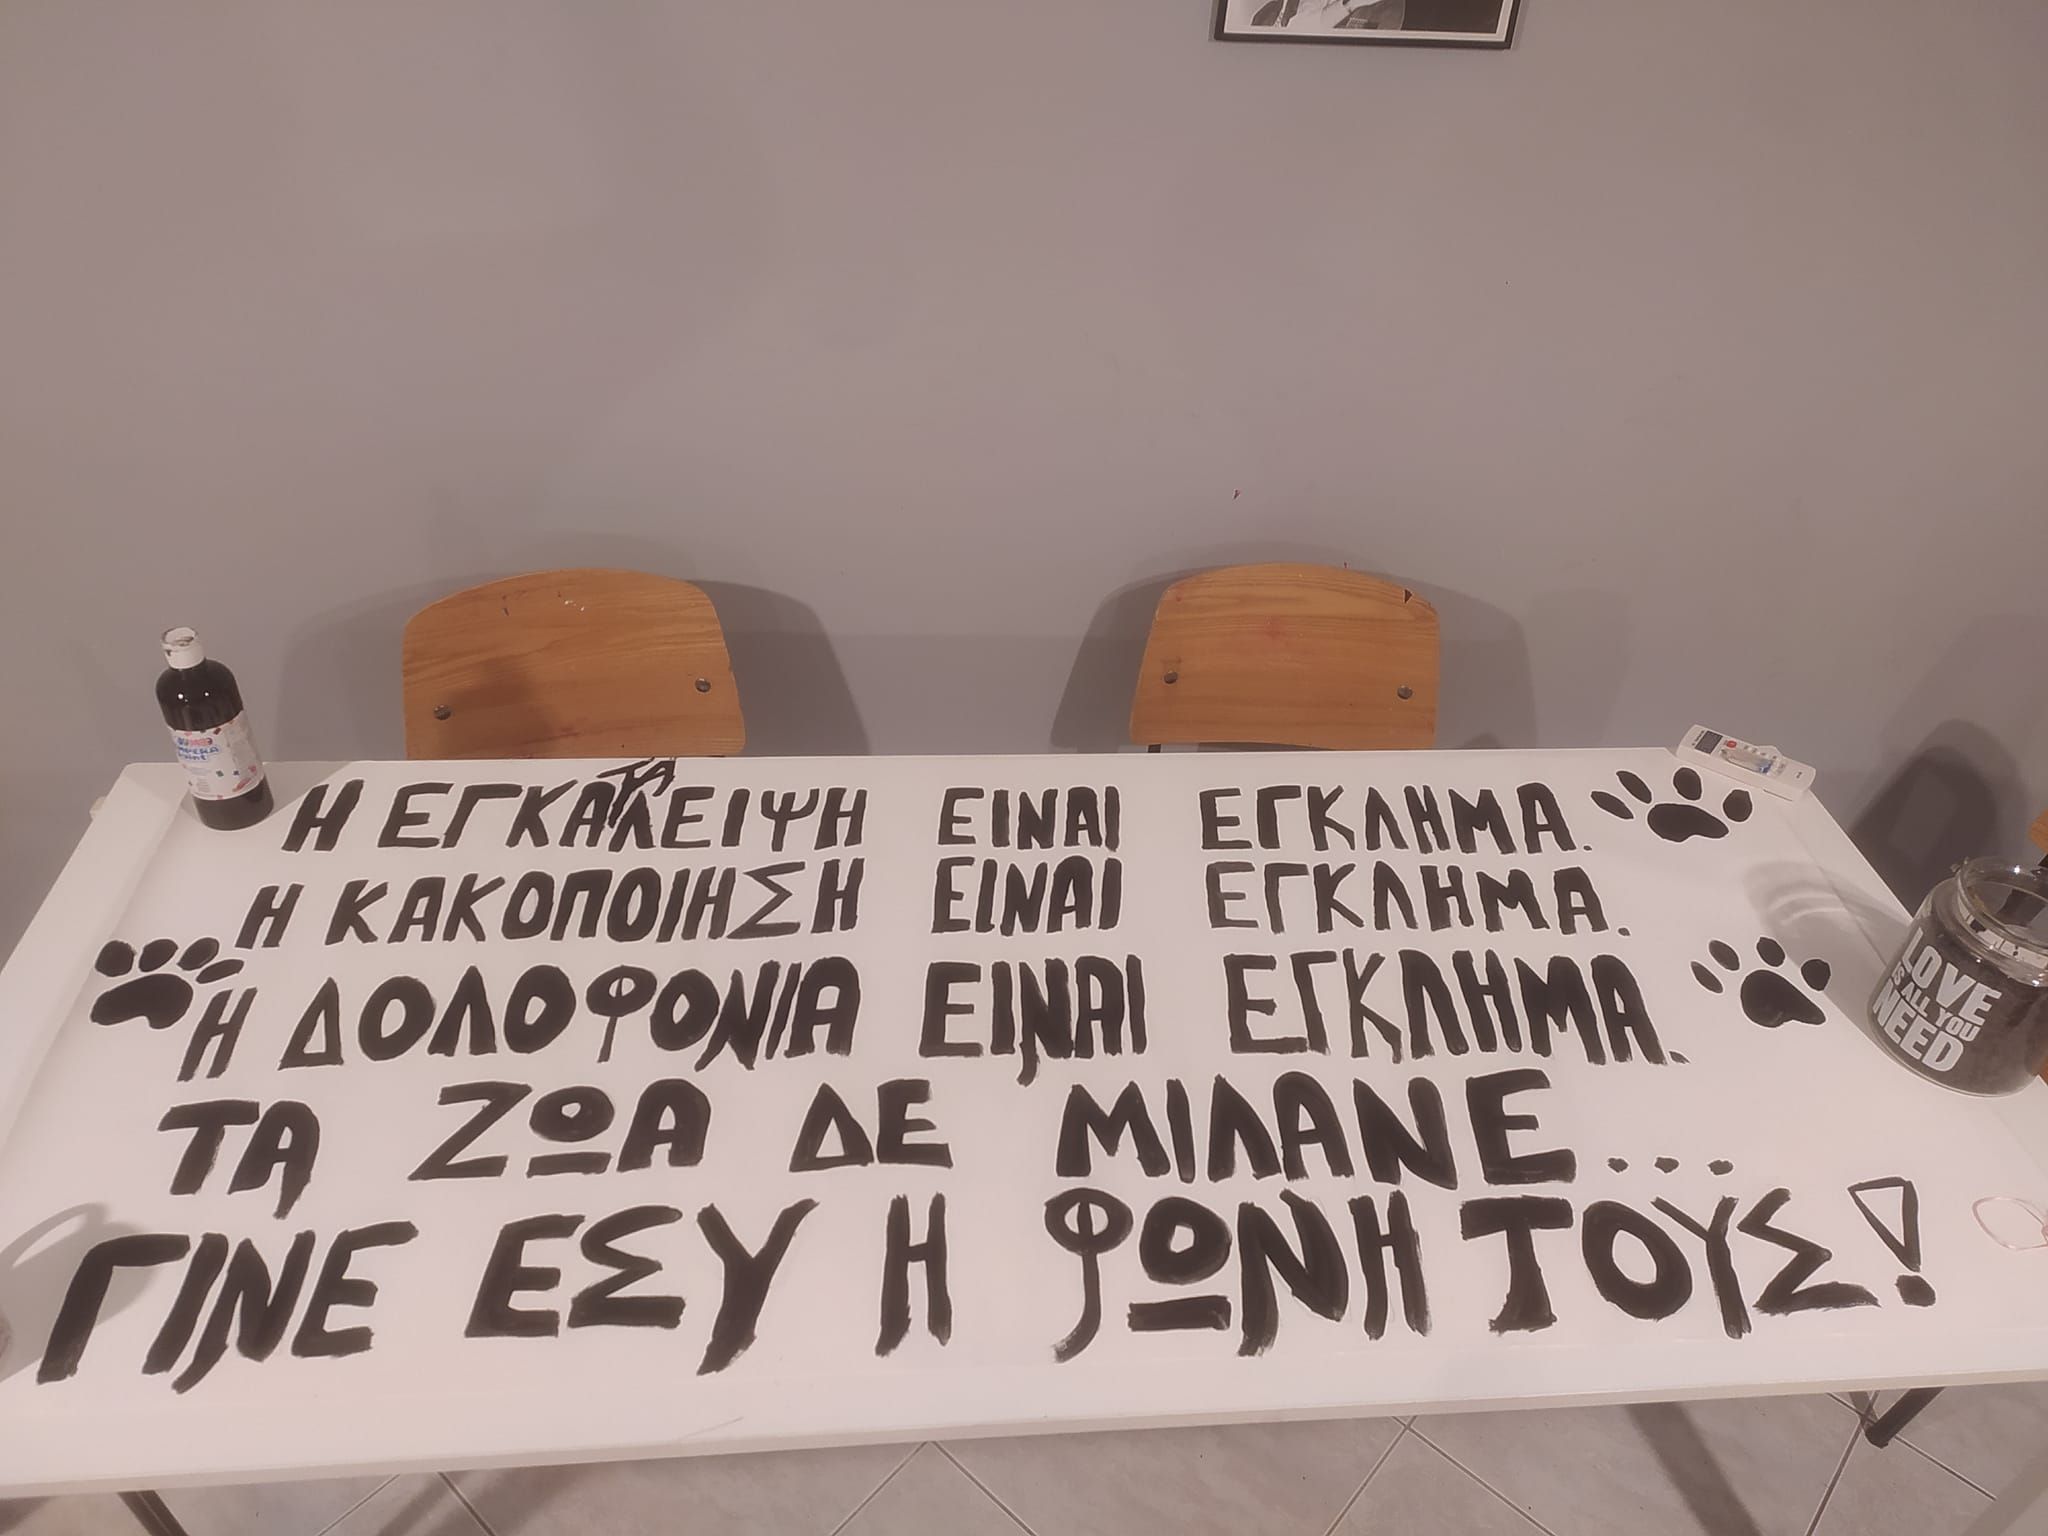 Η ΕΓΚΑΤΑΛΕΙΨΗ ΕΙΝΑΙ ΕΓΚΛΗΜΑ.
Η ΚΑΚΟΠΟΙΗΣΗ ΕΙΝΑΙ ΕΓΚΛΗΜΑ.
Η ΔΟΛΟΦΟΝΙΑ ΕΙΝΑΙ ΕΓΚΛΗΜΑ.
ΤΑ ΖΩΑ ΔΕ ΜΙΛΑΝΕ...
ΓΙΝΕ ΕΣΥ Η ΦΩΝΗ ΤΟΥΣ!
LOVE
IS ALL YOU
NEED